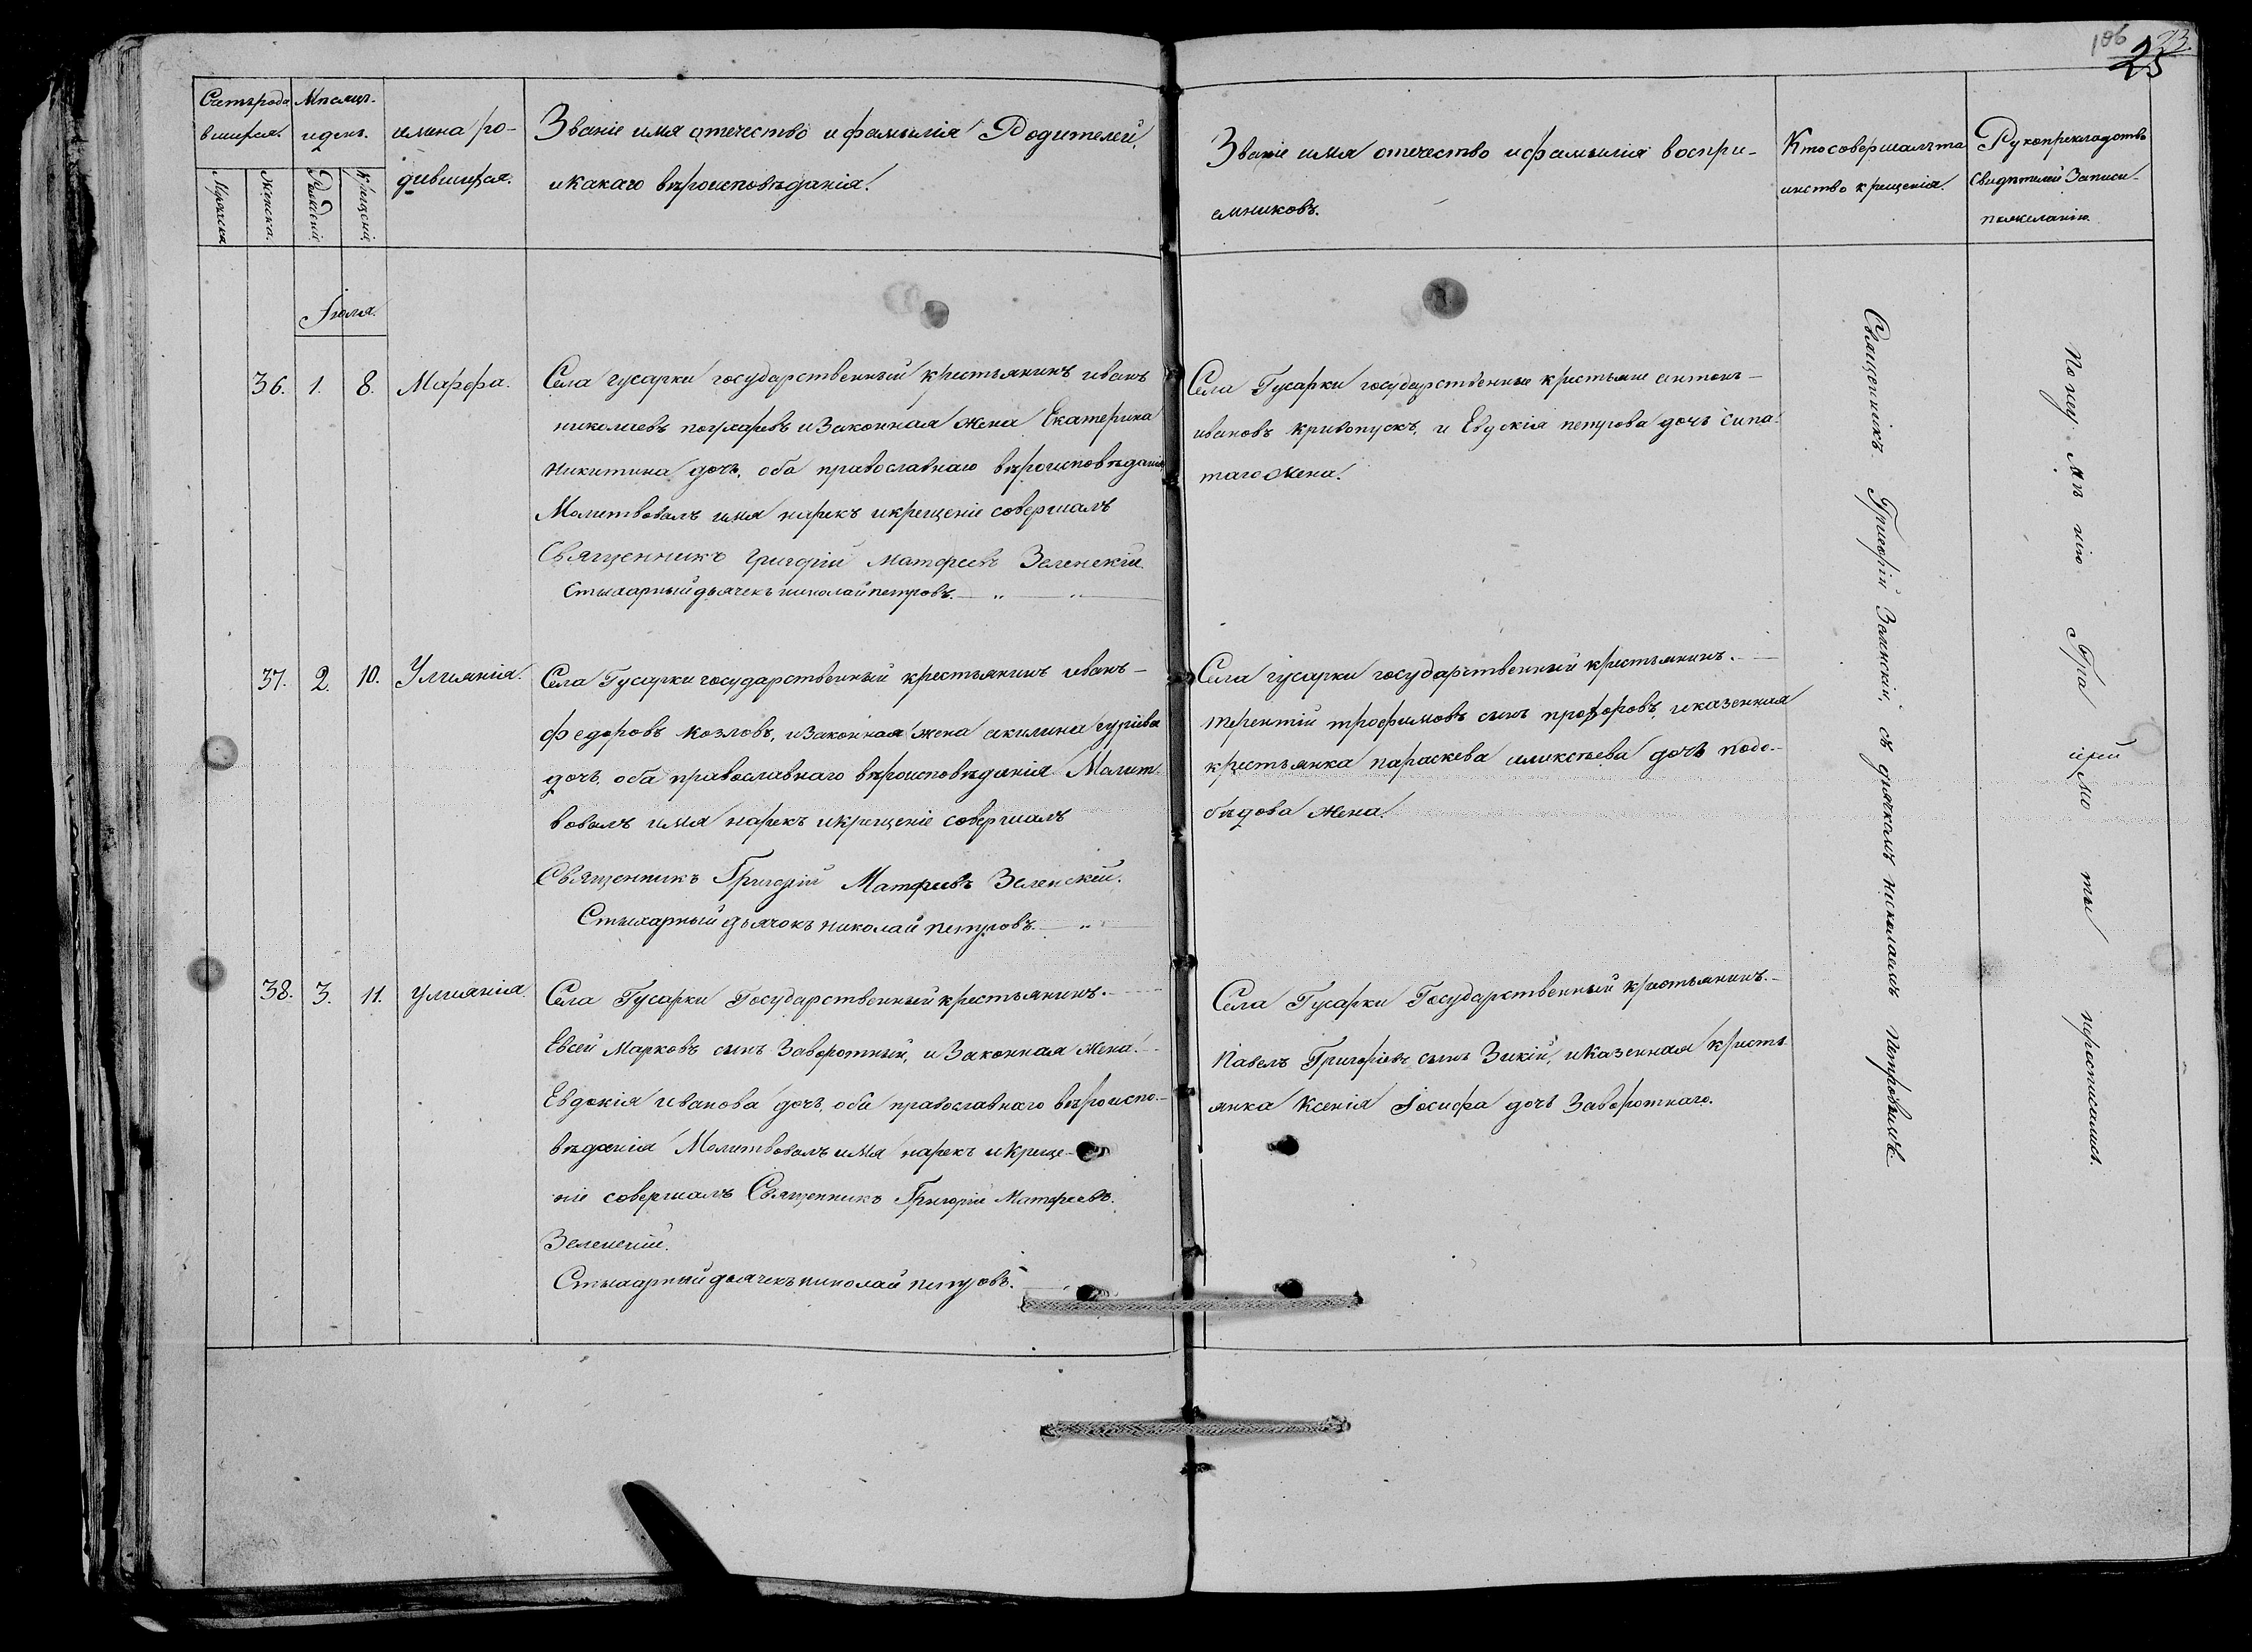 106 23.
25
Счетъ роди
вшихся.
Мѣсяцъ
и день.
имена ро-
дившихся.
Званіе имя отечество и фамилія Родителей,
и какаго вѣроисповѣданія.
Мужеска
Женска.
Рожденія
Крещенія
Званіе имя отечество и фамилія воспри-
емниковъ.
Кто совершалъ та
инство крещенія.
Рукоприкладство
Свидѣтелей Записи
пожеланію
Іюля.
36. 1. 8. Марфа.
Села гусарки государственный крестьянинъ иванъ
николаевъ и Законная жена Екатерина
Никитина дочь, оба православнаго вѣроисповѣданія
Молитвовалъ имя нарекъ и крещеніе совершалъ
Священникъ Григорій Матфеевъ Зеленскій.
Стыхарный дьячекъ николай петровъ.
Села Гусарки государственные крестьяне антонъ
ивановъ кривопускъ, и Евдокія петрова дочь сипа-
таго Жена.
37. 2. 10. Улиянія.
Села Гусарки государственный крестьянинъ иванъ
федоровъ козловъ, и Законная жена акилина гуріева
дочь, оба православнаго вѣроисповѣданія Молит-
вовалъ имя нарекъ и крещеніе совершалъ
Священникъ Григорій Матфеевъ Зеленскій.
Стыхарный дьячокъ николай петровъ.
Села гусарки государственный крестьянинъ.
терентій трофимовъ сынъ прохоровъ, и казенная
крестьянка параскева алексѣева дочь подо-
бѣдова Жена.
38. 3. 11. Улиянія.
Села Гусарки Государственный крестьянинъ.
Евсей Марковъ сынъ Заворотный, и Законная жена.
Евдокія иванова дочь, оба православнаго вѣроиспо-
вѣданія Молитвовалъ имя нарекъ и креще-
ніе совершалъ Священникъ Григорій Матфеевъ.
Зеленскій.
Стыхарный дьячекъ николай петровъ.
Села Гусарки Государственный крестьянинъ.
Павелъ Григорьевъ сынъ Зикій, и Казенная кресть
янка Ксенія Іосифа дочь Заворотнаго.
Священникъ Григорій Зеленскій, съ дьячкомъ николаемъ Петровымъ.
По неу мѣ нію Гра мо ты нерасписались.